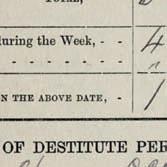 TOTAL,
during the Week, - - 4
- - - - - - "
ON THE ABOVE DATE, - 1
OF DESTITUTE PER